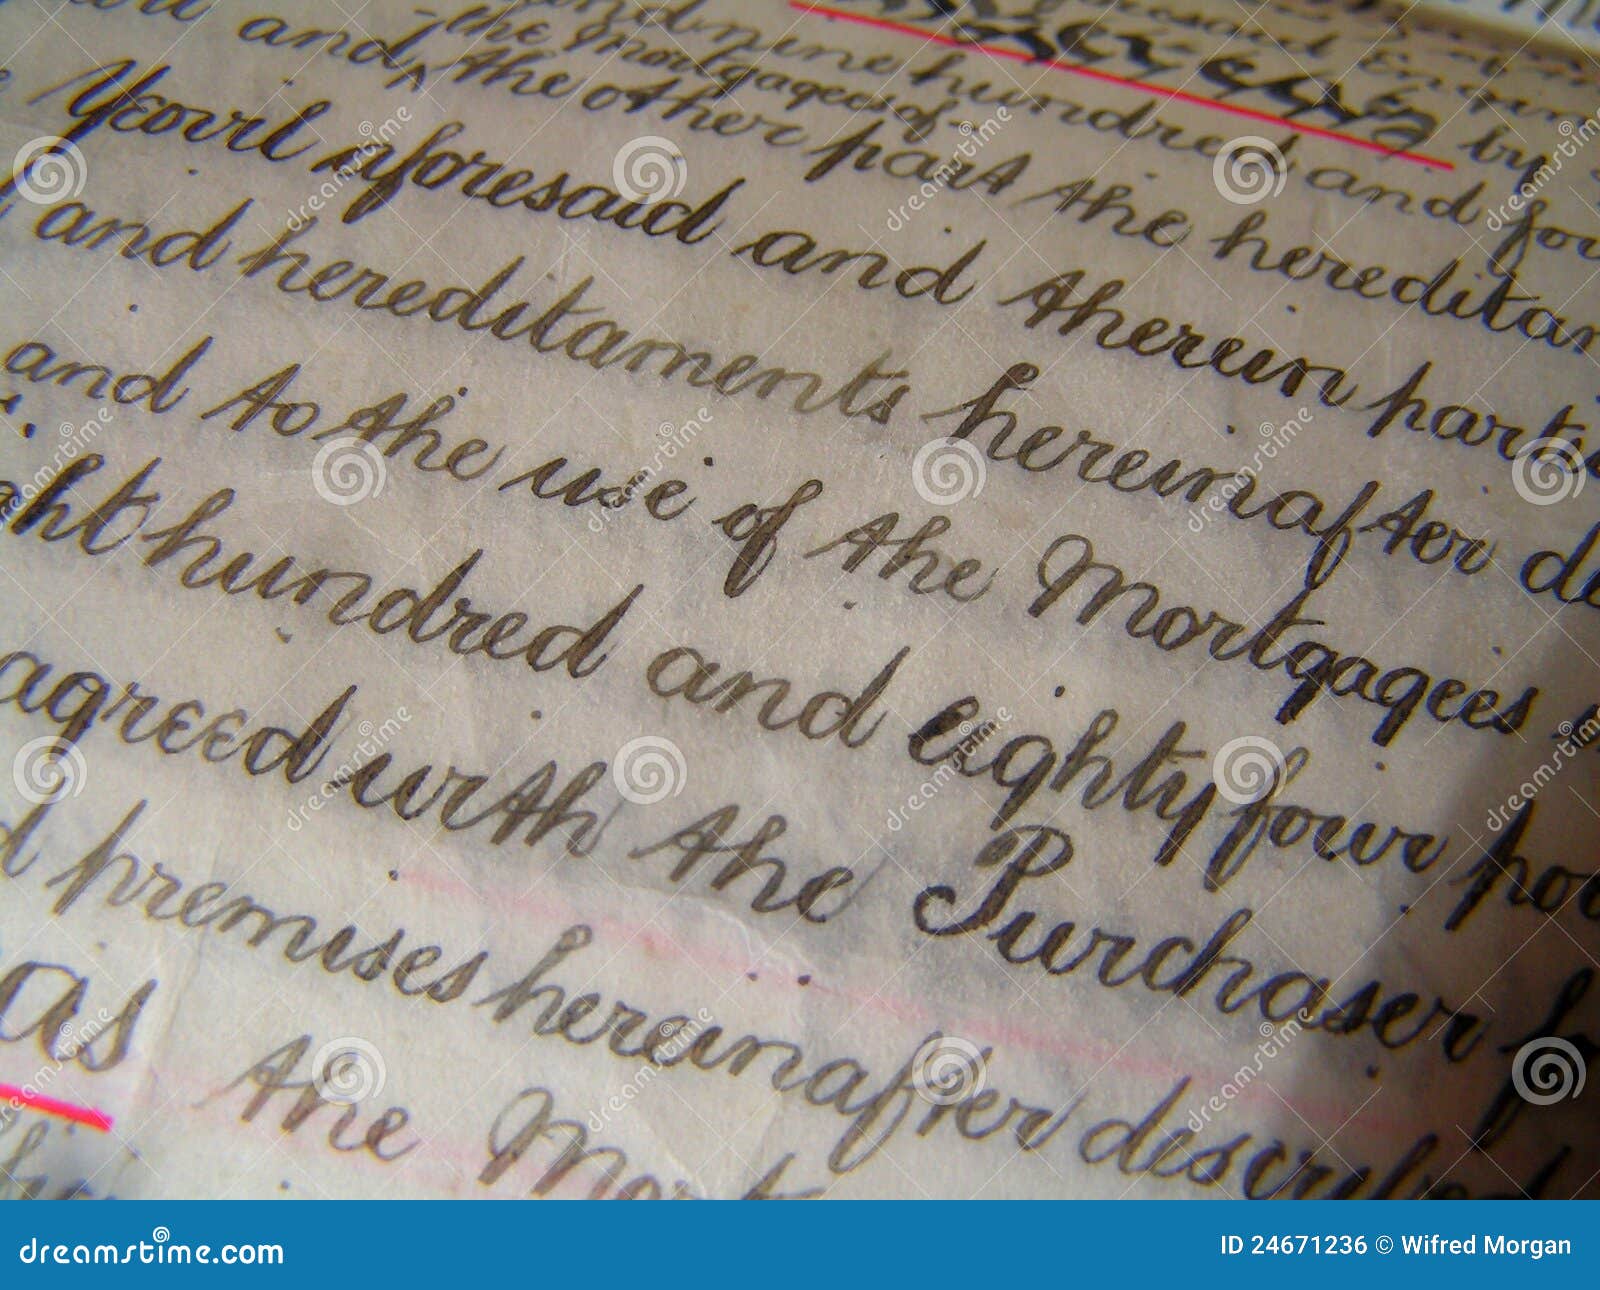 by
and nine hundred and fou
the Mortgagees of
and the other part the hereditam
Yeovil aforesaid and therein parti
and hereditaments hereinafter de
and to the use of the Mortgagees
ght hundred and eighty four pou
agreed with the Purchaser fo
d premises hereinafter described
as the Mort
dreamstime.com ID 24671236 © Wifred Morgan